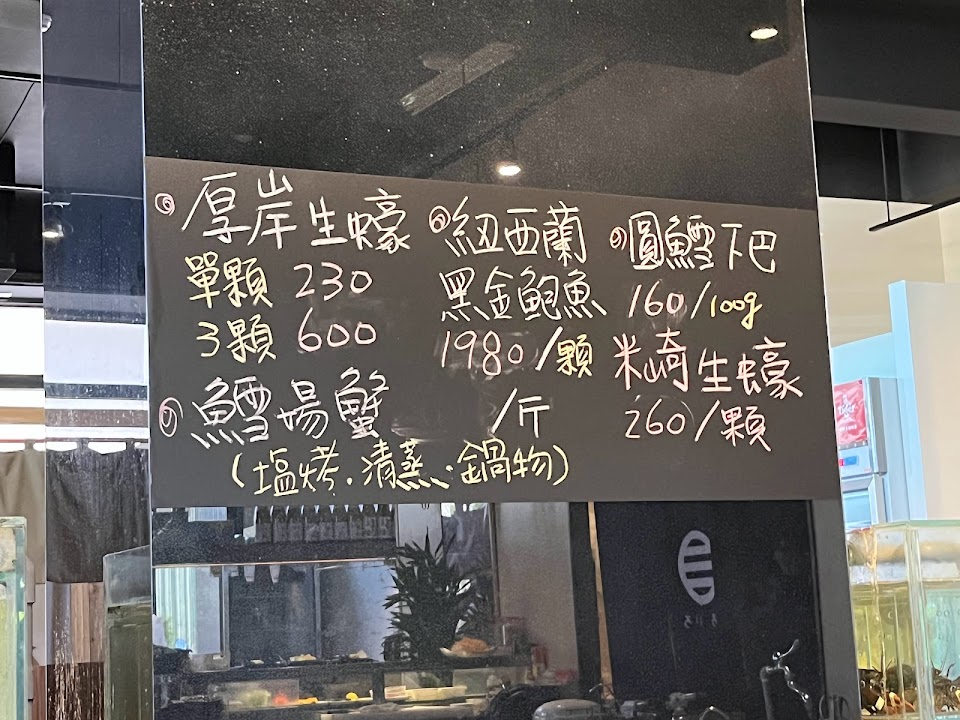 厚岸生蠔
單顆 230
3顆 600
鱈場蟹 /斤
(塩烤.清蒸.鍋物)
紐西蘭
黑金鮑魚
1980/顆
圓鱈下巴
160/100g
米崎生蠔
260/顆